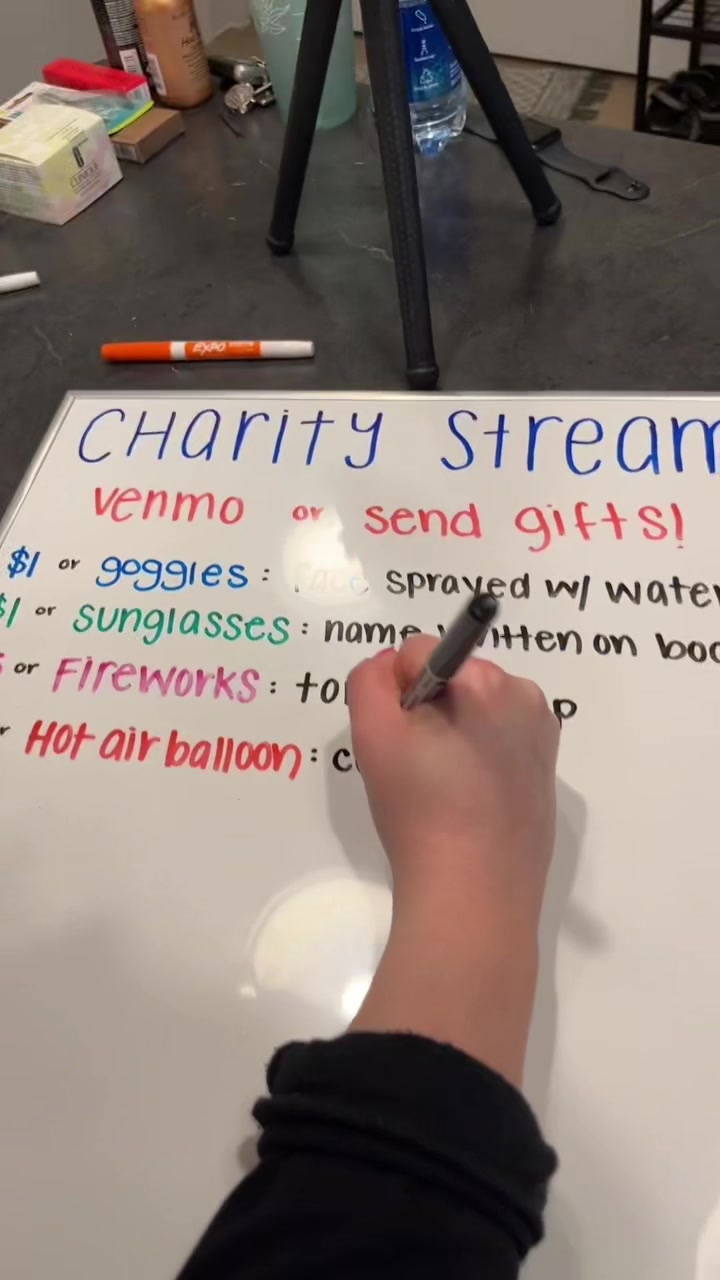 CLINIQUE
EXPO
CHarity Stream
venmo or send gifts!
$1 or goggles: face sprayed w/ water
$1 or sunglasses: name written on
or Fireworks:
Hot air balloon: